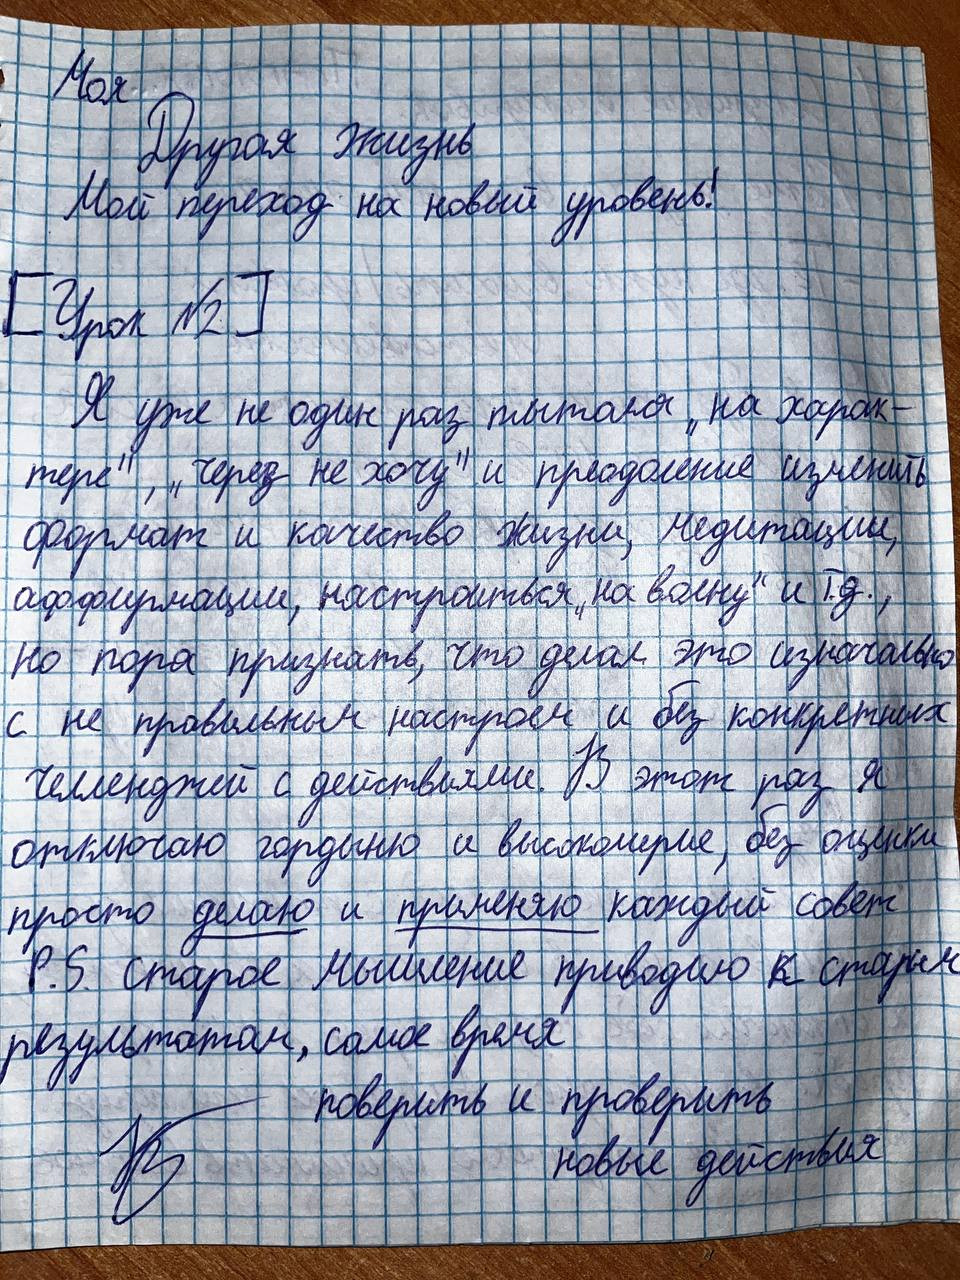 Моя
Другая жизнь
Мой переход на новый уровень!
[Урок №2]
Я уже не один раз пытался „на харак-
тере", „через не хочу" и преодоление изменить
формат и качество жизни, медитации,
аффирмации, настроиться „на волну" и т.д.,
но пора признать, что делал это изначально
с не правильным настроем и без конкретных
челленджей с действиями. В этот раз я
отключаю гордыню и высокомерие, без оценки
просто делаю и применяю каждый совет
P.S. старое мышление приводило к старым
результатам, самое время
поверить и проверить
новые действия